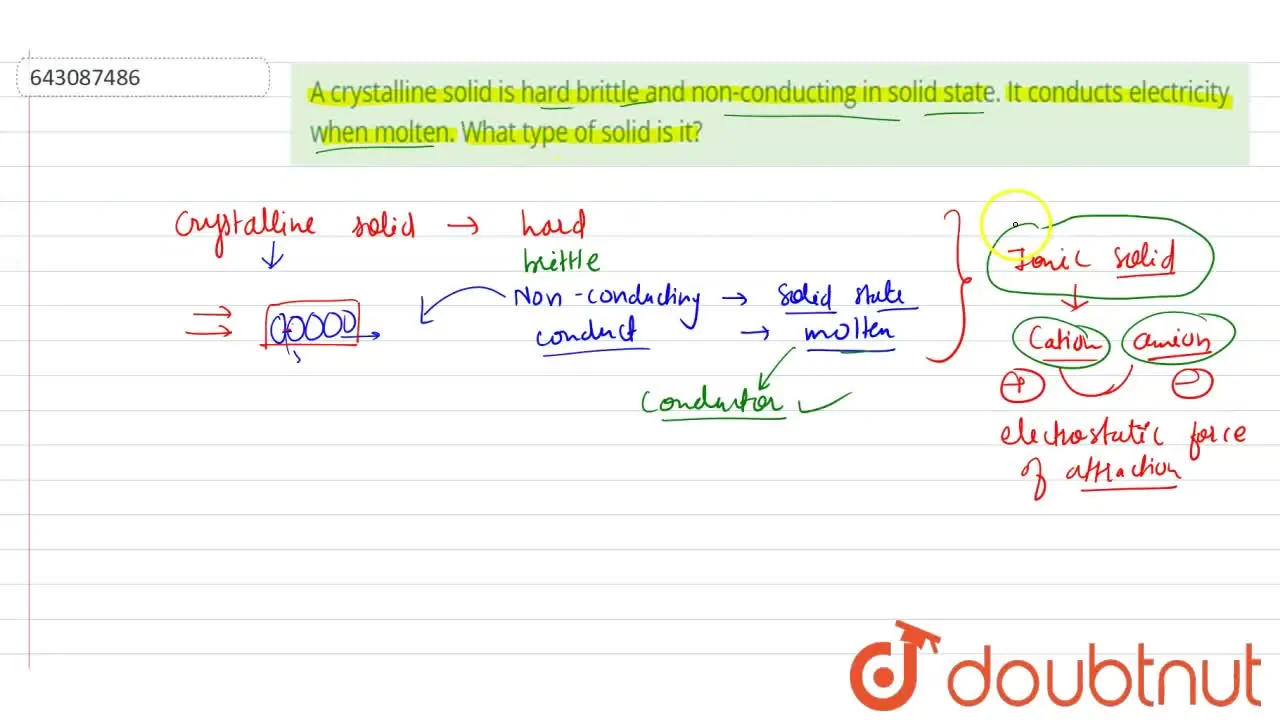 643087486
A crystalline solid is hard brittle and non-conducting in solid state. It conducts electricity
when molten. What type of solid is it?
Crystalline solid → hard
brittle
Non-conducting → solid state
conduct → molten
conductor ✓
Ionic solid
Cation anion
+ −
electrostatic force
of attraction
doubtnut